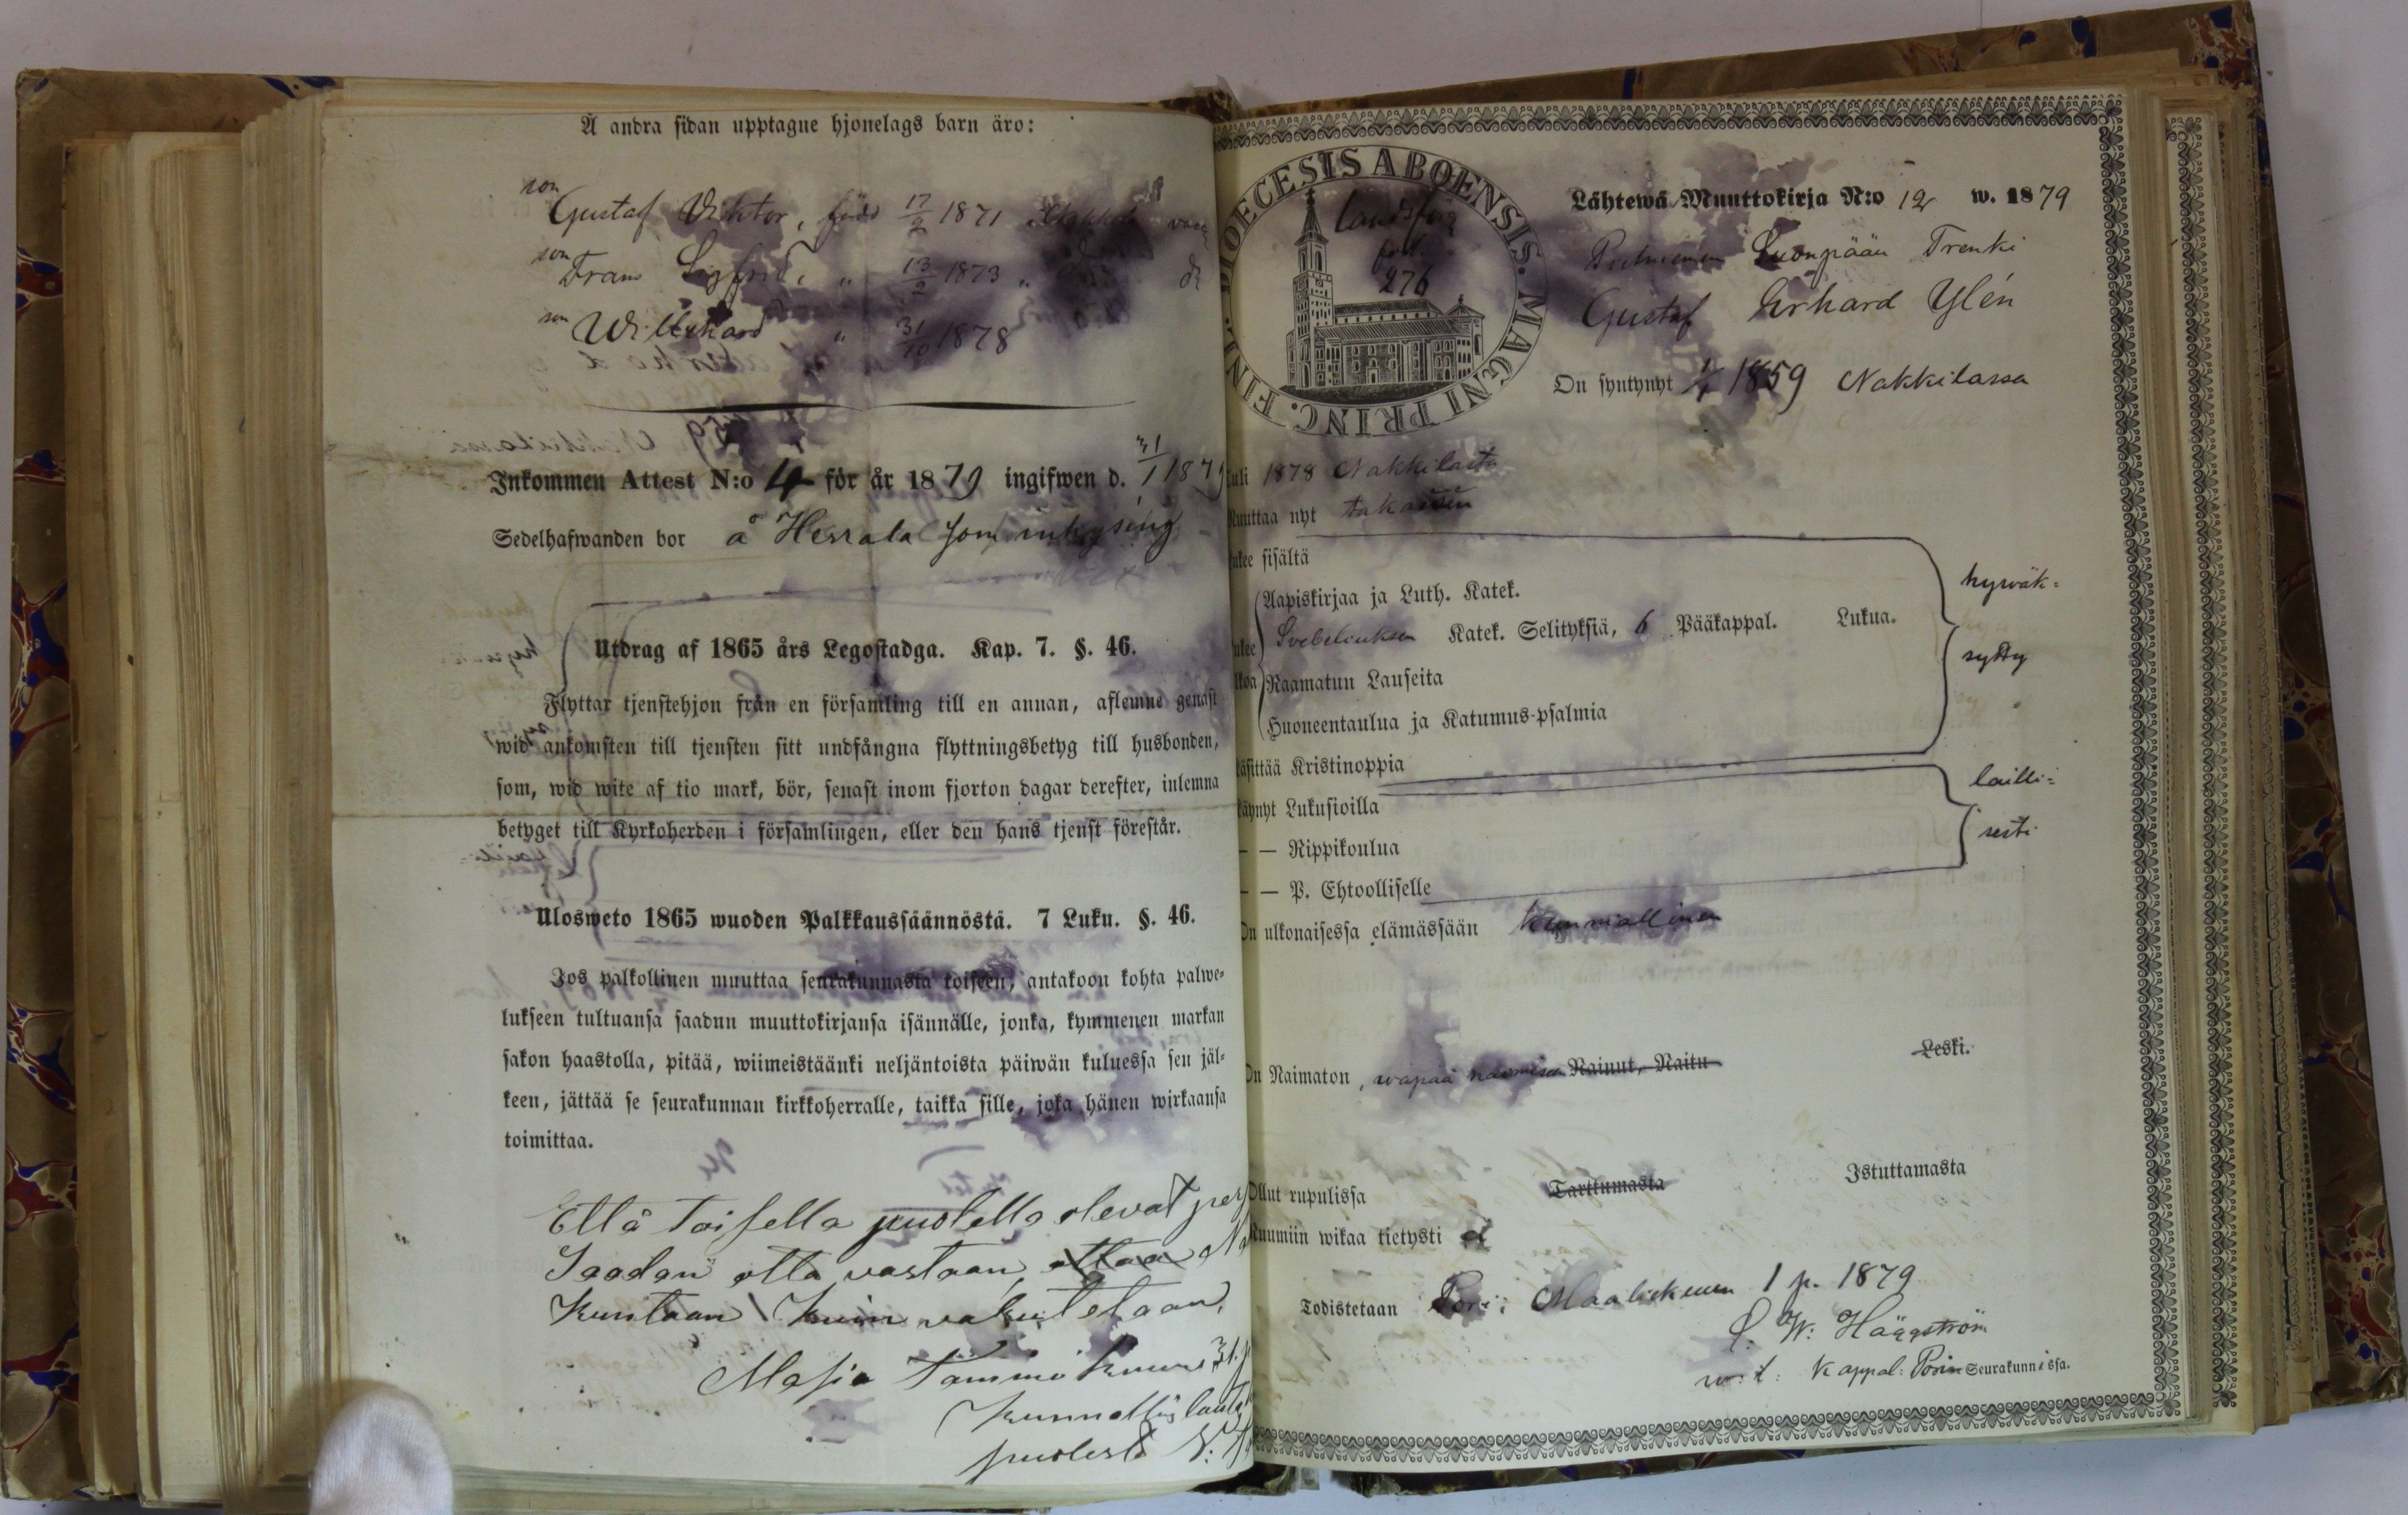 Å andra sidan upptagne hjonelags barn äro:
son
Gustaf Viktor, född 17/2 1871
son
Frans Sigfrid, " 13/2 1873 " d:o
son
Willehard " 31/10 1878
Inkommen Attest N:o 4 för år 1879 ingifwen d. 31/1 1879
Sedelhafwanden bor å Herrala som inhysing
Utdrag af 1865 års Legostadga. Kap. 7. §. 46.
Flyttar tjenstehjon från en församling till en annan, aflemne genast
wid ankomsten till tjensten sitt undfångna flyttningsbetyg till husbonden,
som, wid wite af tio mark, bör, senast inom fjorton dagar derefter, inlemna
betyget till Kyrkoherden i församlingen, eller den hans tjenst förestår.
Ulosweto 1865 wuoden Palkkaussäännöstä. 7 Luku. §. 46.
Jos palkollinen muuttaa seurakunnasta toiseen, antakoon kohta palwe-
lukseen tultuansa saadun muuttokirjansa isännälle, jonka, kymmenen markan
sakon haastolla, pitää, wiimeistäänki neljäntoista päiwän kuluessa sen jäl-
keen, jättää se seurakunnan kirkkoherralle, taikka sille, joka hänen wirkaansa
toimittaa.
Että toisella puolella olevat
Saadan otta vastaan ottaa
kuntaan kuin vakutetaan,
Masia Tammi kuun 31.
kunnallis
puolesta
DIOECESIS ABOENSIS. MAGNI PRINC. FINL.
Landsförs
fol.
276
Lähtewä Muuttokirja N:o 12 w. 1879
Suonpään Trenki
Gustaf Erhard Ylén
On syntynyt 1/1 1859 Nakkilassa
1878 Nakkilasta
Muuttaa nyt takaisin
sisältä
Aapiskirjaa ja Luth. Katek.
Svebeliuksen Katek. Selityksiä, 6 Pääkappal. Lukua.
Raamatun Lauseita
Huoneentaulua ja Katumus-psalmia
hywäk-
sytty
Käsittää Kristinoppia
Käynyt Lukusioilla
— — Rippikoulua
— — P. Ehtoolliselle
lailli-
sesti
On ulkonaisessa elämässään kunniallinen
On Naimaton, wapaa naimisen Nainut, Naitu Leski.
Ollut rupulissa Tarttumasta Istuttamasta
Ruumiin wikaa tietysti ei
Todistetaan Pori: Maaliskuun 1 p. 1879
W. Häggström
w. t. Kappal: Porin Seurakunnissa.